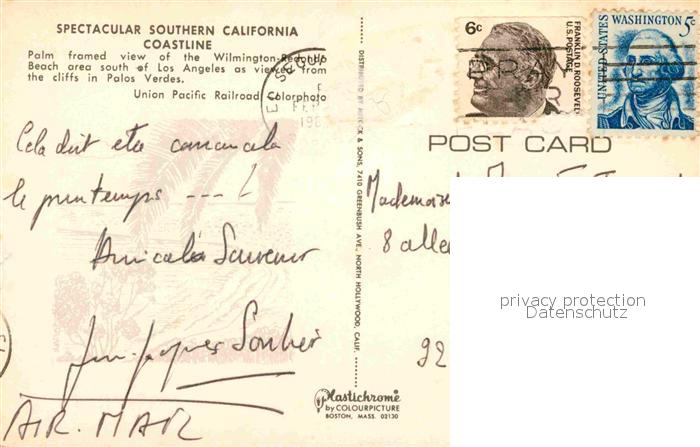 SPECTACULAR SOUTHERN CALIFORNIA
COASTLINE
Palm framed view of the Wilmington-Redondo
Beach area south of Los Angeles as viewed from
the cliffs in Palos Verdes.
Union Pacific Railroad Colorphoto
Cela doit etre comme cela
le printemps ---!
Amicale Souvenir
Jean-Jacques
AIR. MAIL
DISTRIBUTED BY & SONS, 7410 GREENBUSH AVE. NORTH HOLLYWOOD, CALIF.
Plastichrome
by COLOURPICTURE
BOSTON, MASS. 02130
6c
FRANKLIN D. ROOSEVELT
U.S. POSTAGE
WASHINGTON 5c
UNITED STATES
POST CARD
Mademoise
8 allee
92
privacy protection
Datenschutz